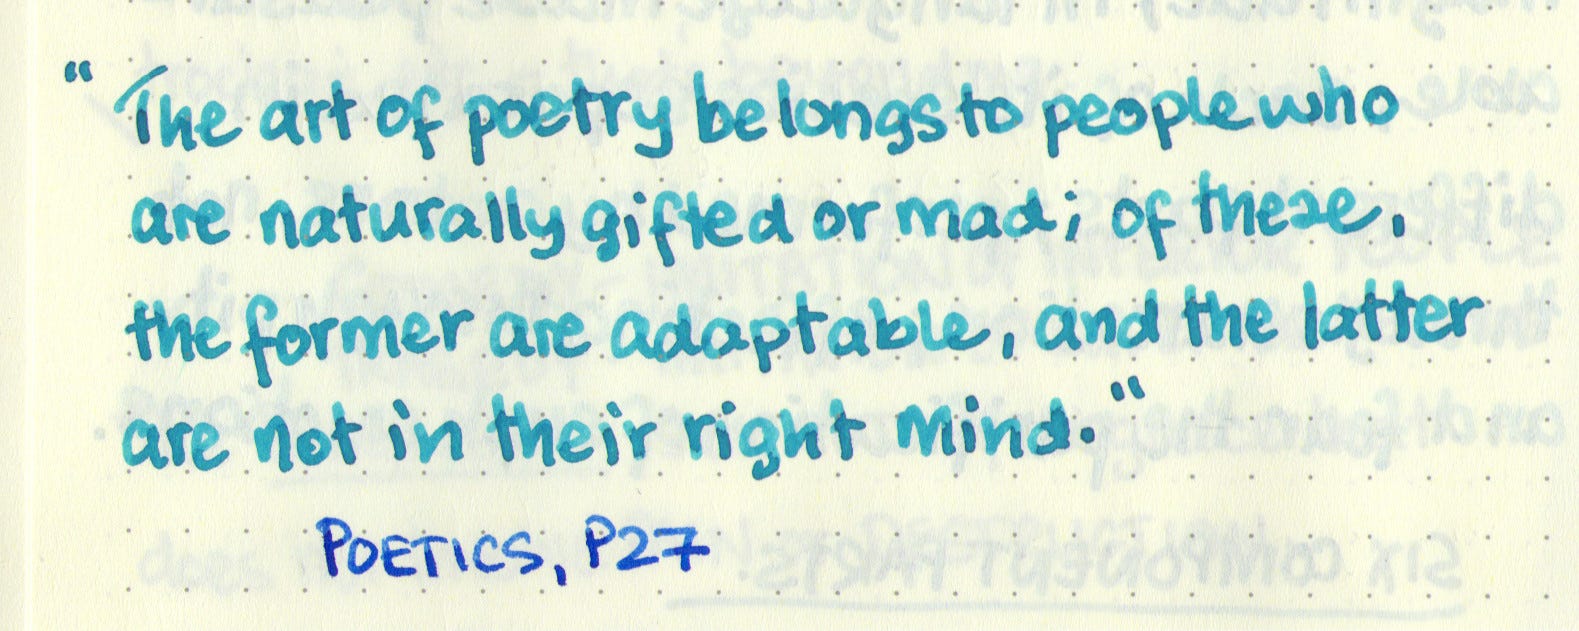 "The art of poetry belongs to people who
are naturally gifted or mad; of these,
the former are adaptable, and the latter
are not in their right mind."
POETICS, P27
SIX COMPONENT PARTS!